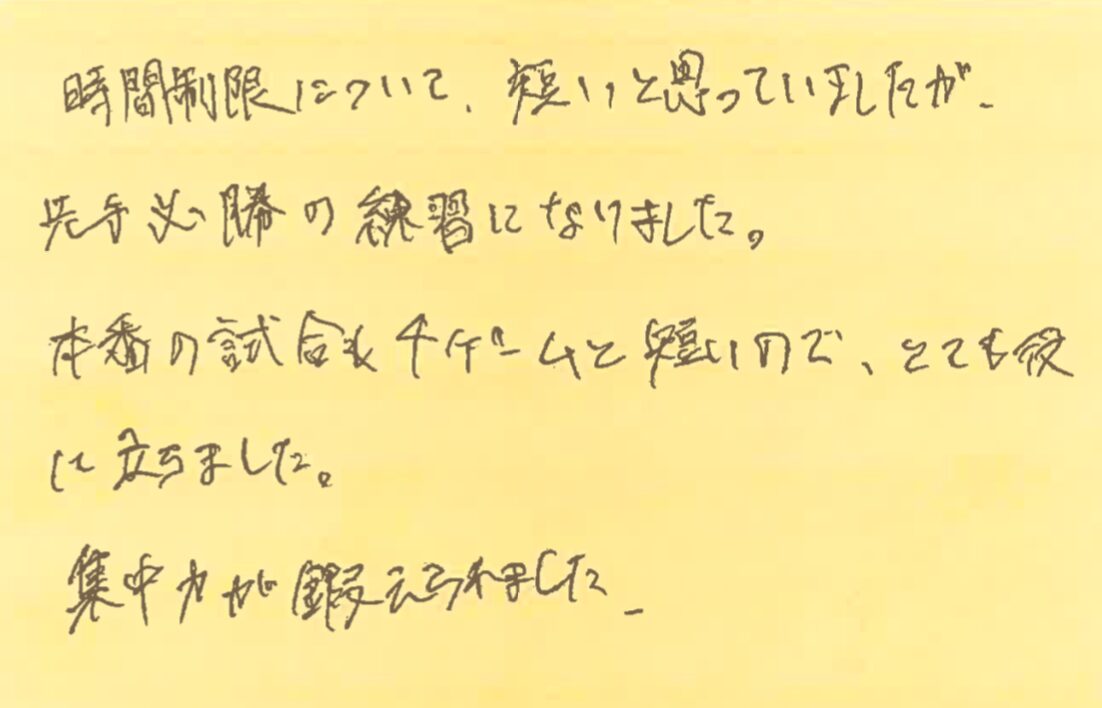 時間制限について、短いと思っていましたが、
先手必勝の練習になりました。
本番の試合も4ゲームと短いので、とても役
に立ちました。
集中力が鍛えられました。